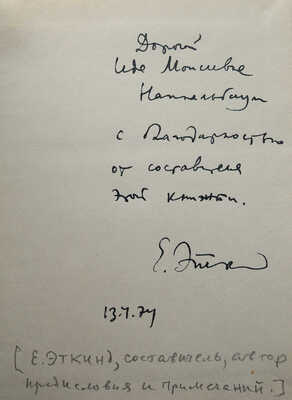 Дорогой
Иде Моисеевне
Наппельбаум
с благодарностью
от составителя
этой книжки.
Е. Эткинд
13.I.74
[Е. ЭТКИНД, составитель, автор
предисловия и примечаний.]